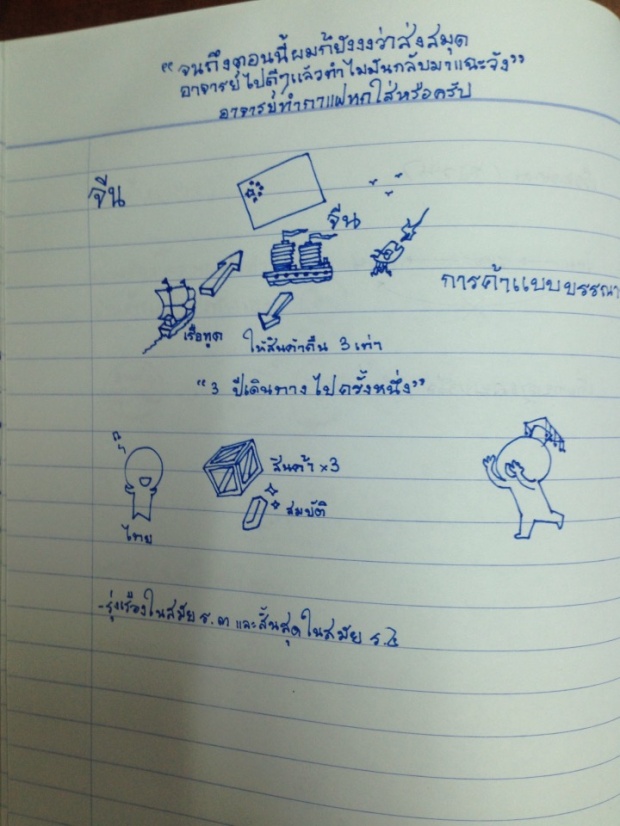 “จนถึงตอนนี้ผมก็ยังงงว่าส่งสมุด
อาจารย์ไปดีๆแล้วทำไมมันกลับมาแฉะวัง”
อาจารย์ทำกาแฟหกใส่หรือครับ
จีน
จีน
การค้าแบบบรรณา
เรือทูต
ให้สินค้าคืน 3 เท่า
“3 ปีเดินทางไปครั้งหนึ่ง”
สินค้า ×3
สมบัติ
ไทย
-รุ่งเรืองในสมัย ร. และสิ้นสุดในสมัย ร.